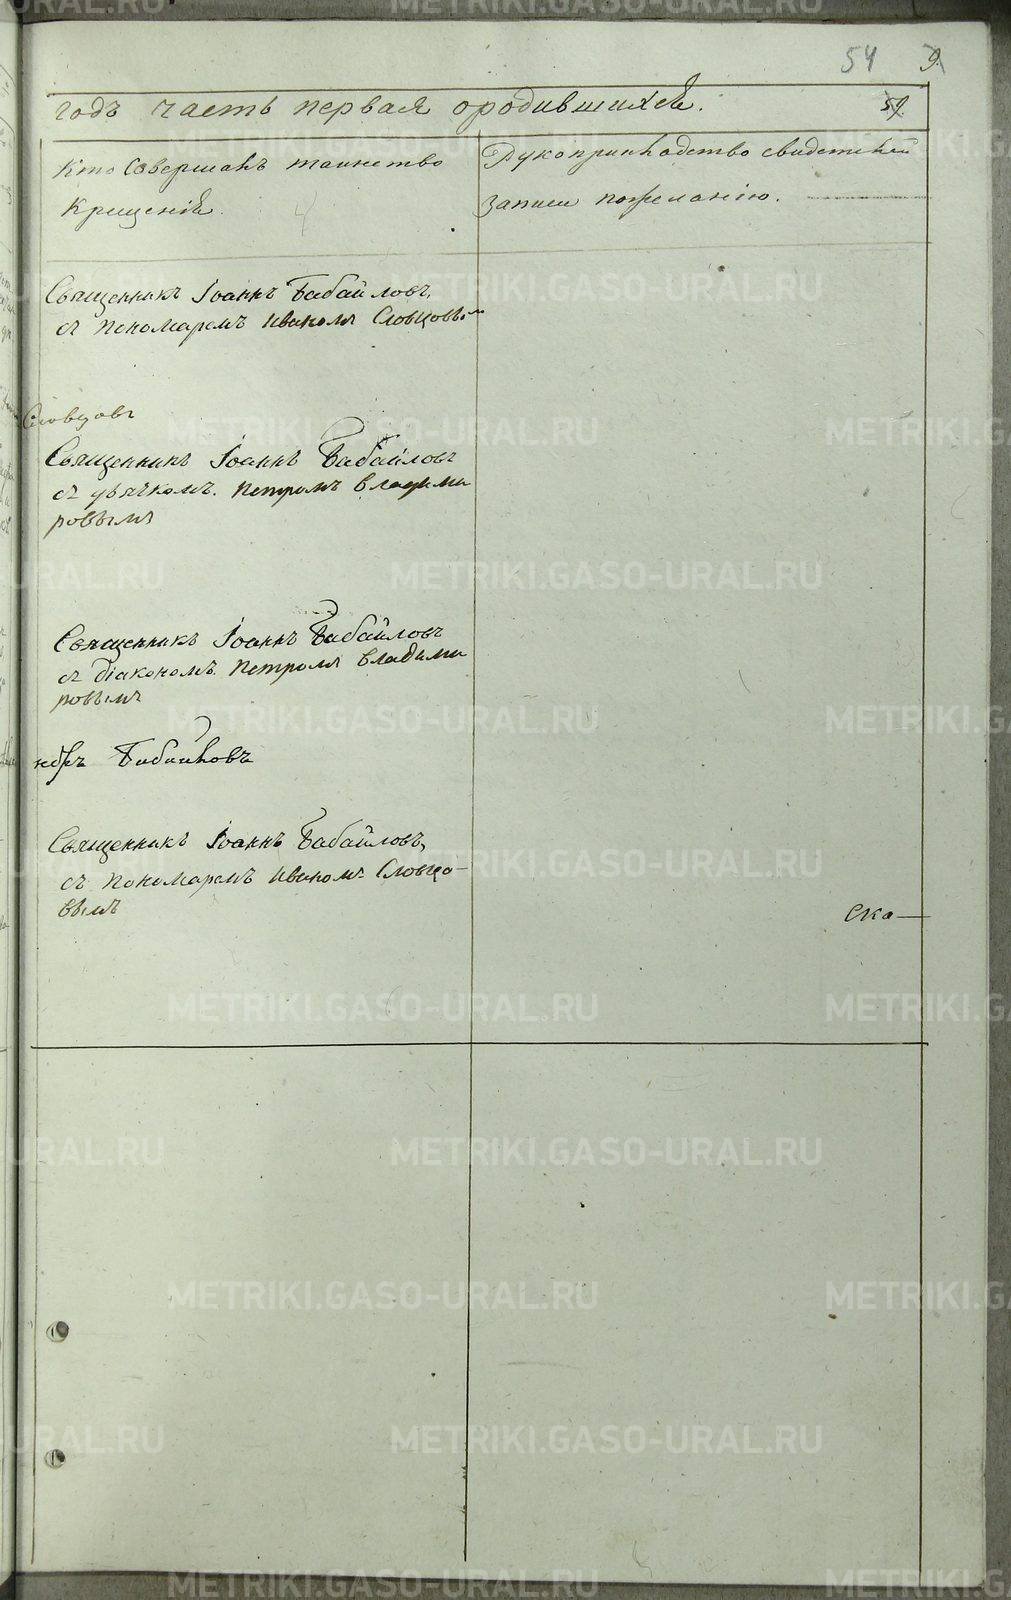 54 9
годъ часть первая ородившихся. 59.
Кто Совершалъ таинство
Крещенія.
Рукоприкладство свидетелей
записи пожеланію.
Священникъ Іоаннъ Бабайловъ,
съ пономаремъ Иваномъ Словцовым
Словцовъ
Священникъ Іоаннъ Бабайловъ
съ дьячкомъ. Петромъ Владими
ровымъ
Священникъ Іоаннъ Бабайловъ
съ діакономъ. Петромъ Владими
ровымъ
Бабайловъ
Священникъ Іоаннъ Бабайловъ,
съ пономаремъ Иваномъ Словцо-
вымъ
Ска—
METRIKI.GASO-URAL.RU